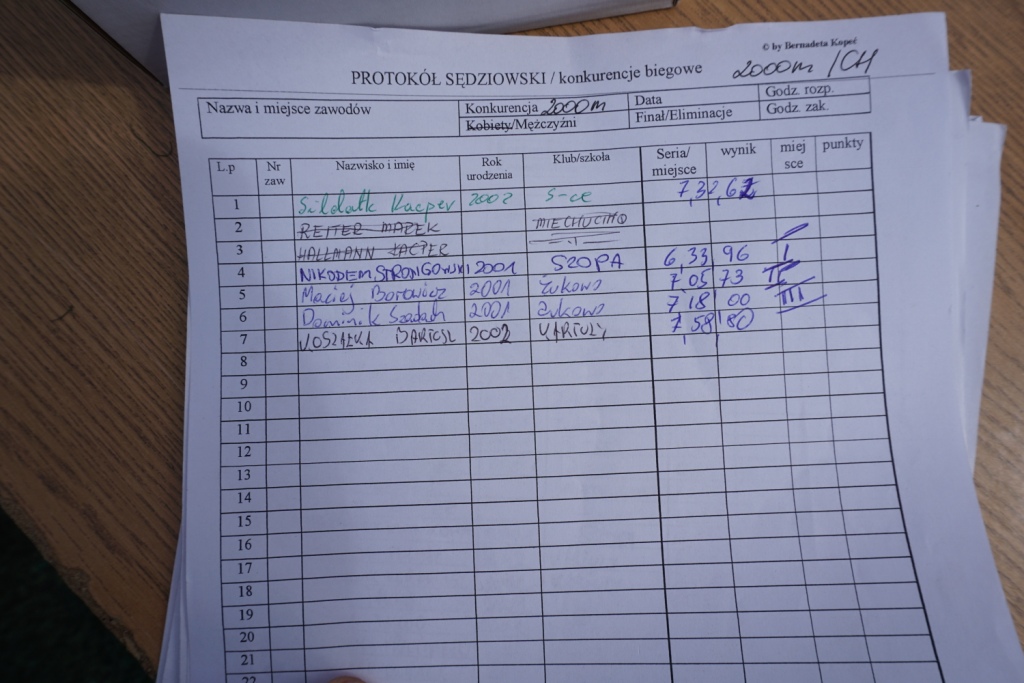 © by Bernadeta Kopeć
PROTOKÓŁ SĘDZIOWSKI / konkurencje biegowe 2000m /CH
Nazwa i miejsce zawodów Konkurencja 2000m Data Godz. rozp.
Kobiety/Mężczyźni Finał/Eliminacje Godz. zak.
L.p Nr zaw Nazwisko i imię Rok urodzenia Klub/szkoła Seria/miejsce wynik miejsce punkty
1 Kacper 2002 S-ce 7,32,62
2 REITER MAREK MIECHUCINO
3 HALLMANN KACPER -"-
4 NIKODEM STRONGOWSKI 2001 SZOPA 6,33,96 I
5 Maciej Borowicz 2001 Żukowo 7 05 73 II
6 Dominik 2001 Żukowo 7 18 00 III
7 KOSZAŁKA BARTOSZ 2002 KARTUZY 7 58 80
8
9
10
11
12
13
14
15
16
17
18
19
20
21
22